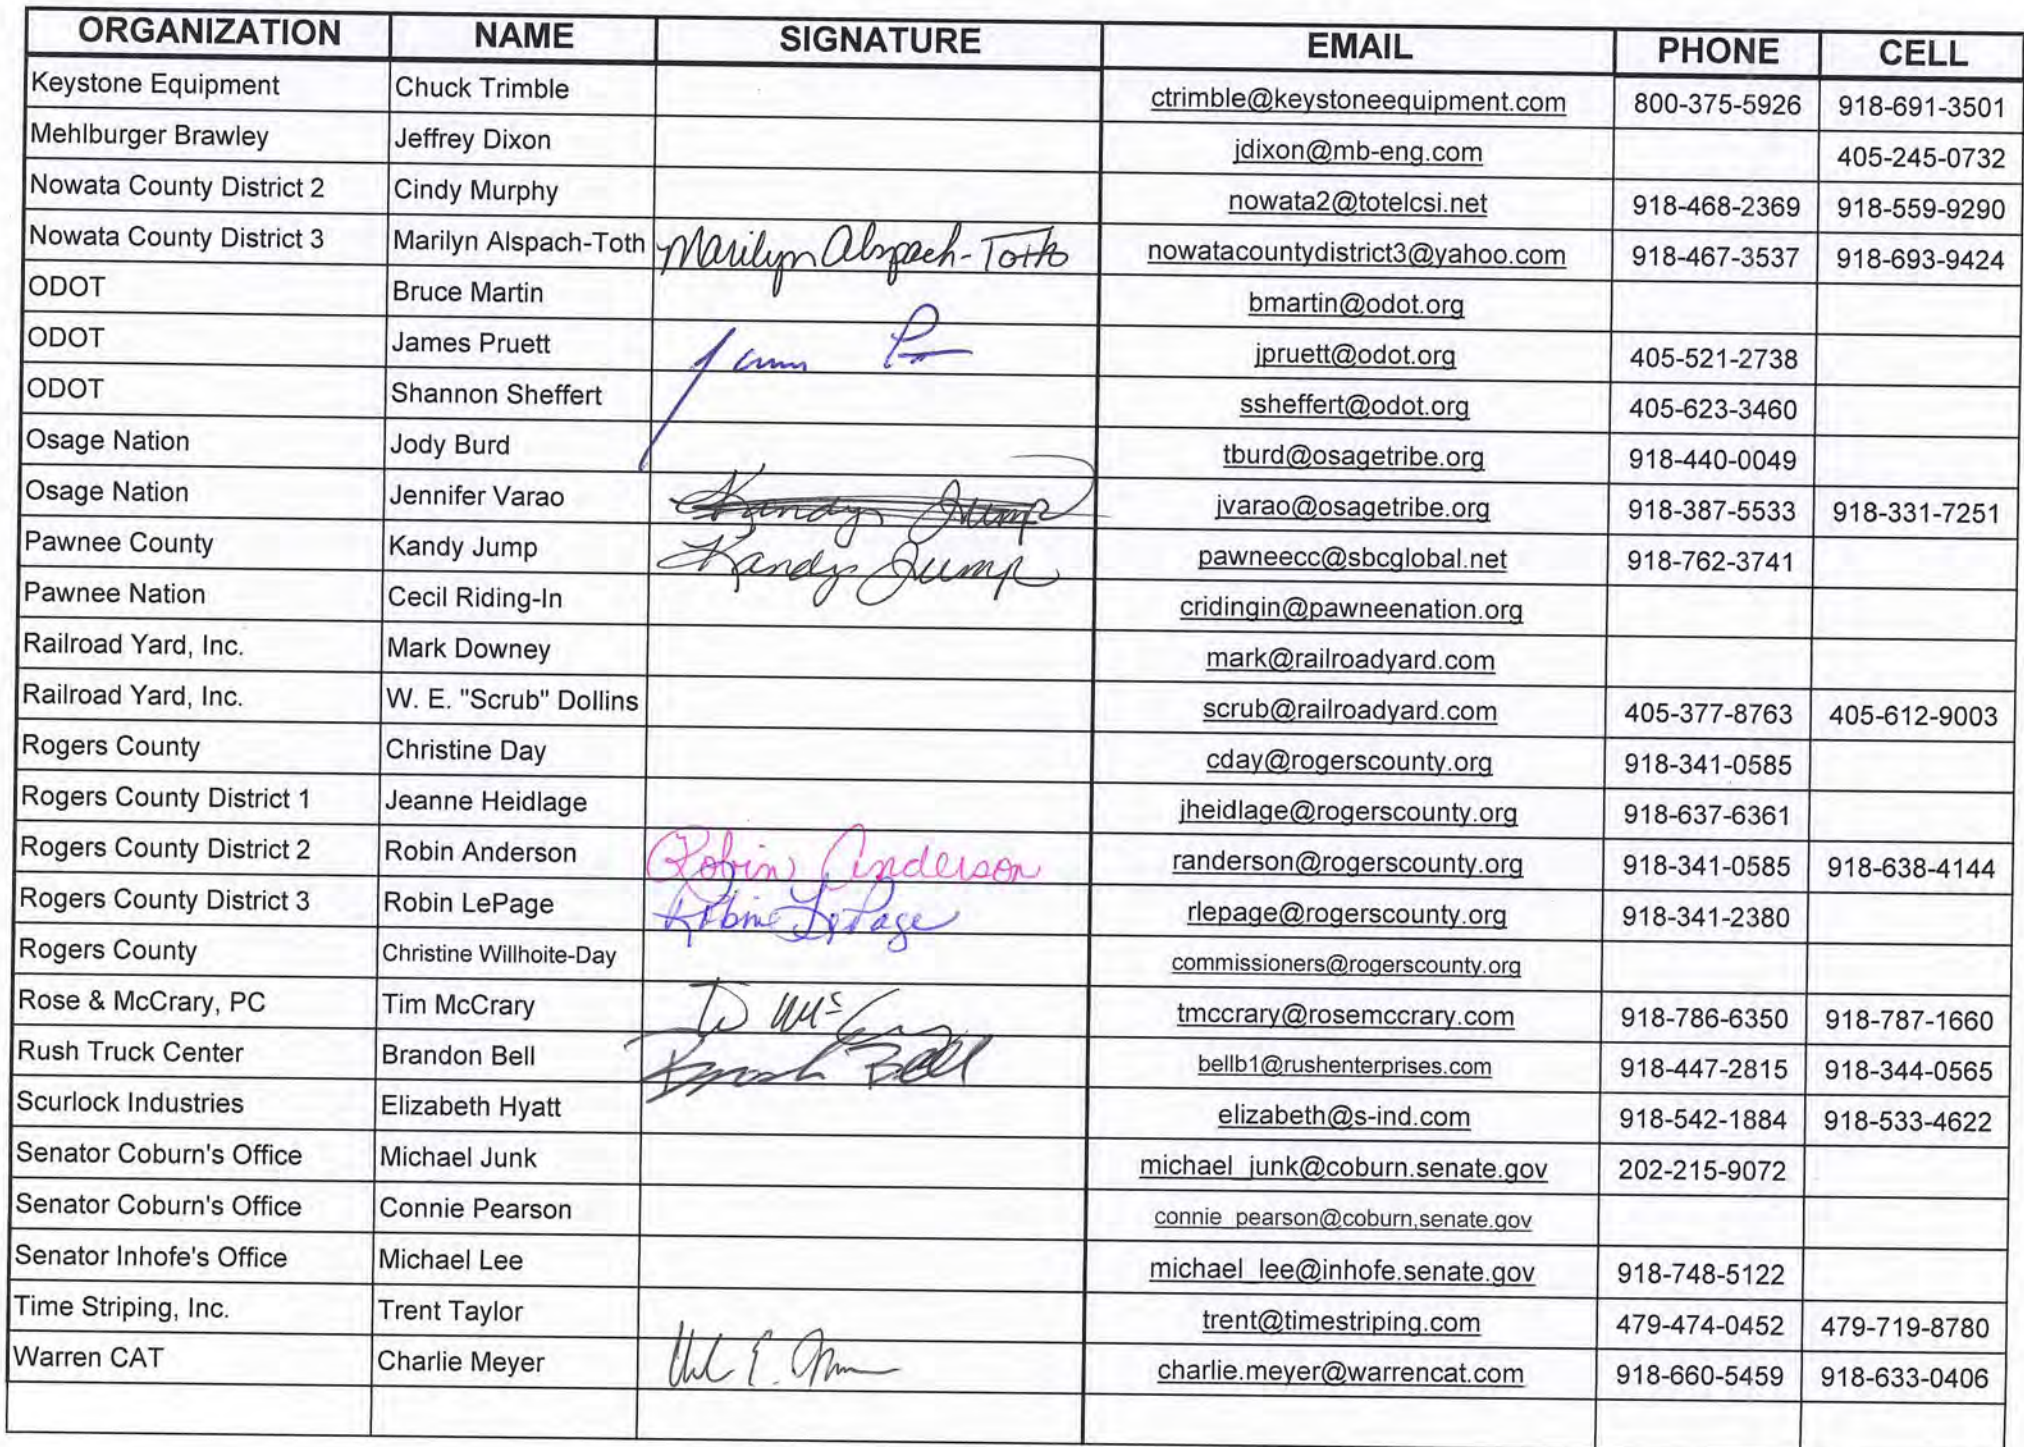 ORGANIZATION NAME SIGNATURE EMAIL PHONE CELL
Keystone Equipment Chuck Trimble ctrimble@keystoneequipment.com 800-375-5926 918-691-3501
Mehlburger Brawley Jeffrey Dixon jdixon@mb-eng.com 405-245-0732
Nowata County District 2 Cindy Murphy nowata2@totelcsi.net 918-468-2369 918-559-9290
Nowata County District 3 Marilyn Alspach-Toth Marilyn Alspach-Toth nowatacountydistrict3@yahoo.com 918-467-3537 918-693-9424
ODOT Bruce Martin bmartin@odot.org
ODOT James Pruett jpruett@odot.org 405-521-2738
ODOT Shannon Sheffert ssheffert@odot.org 405-623-3460
Osage Nation Jody Burd tburd@osagetribe.org 918-440-0049
Osage Nation Jennifer Varao Kandy Jump jvarao@osagetribe.org 918-387-5533 918-331-7251
Pawnee County Kandy Jump Kandy Jump pawneecc@sbcglobal.net 918-762-3741
Pawnee Nation Cecil Riding-In cridingin@pawneenation.org
Railroad Yard, Inc. Mark Downey mark@railroadyard.com
Railroad Yard, Inc. W. E. "Scrub" Dollins scrub@railroadyard.com 405-377-8763 405-612-9003
Rogers County Christine Day cday@rogerscounty.org 918-341-0585
Rogers County District 1 Jeanne Heidlage jheidlage@rogerscounty.org 918-637-6361
Rogers County District 2 Robin Anderson Robin Anderson randerson@rogerscounty.org 918-341-0585 918-638-4144
Rogers County District 3 Robin LePage Robin LePage rlepage@rogerscounty.org 918-341-2380
Rogers County Christine Willhoite-Day commissioners@rogerscounty.org
Rose & McCrary, PC Tim McCrary tmccrary@rosemccrary.com 918-786-6350 918-787-1660
Rush Truck Center Brandon Bell Bell bellb1@rushenterprises.com 918-447-2815 918-344-0565
Scurlock Industries Elizabeth Hyatt elizabeth@s-ind.com 918-542-1884 918-533-4622
Senator Coburn's Office Michael Junk michael_junk@coburn.senate.gov 202-215-9072
Senator Coburn's Office Connie Pearson connie_pearson@coburn,senate.gov
Senator Inhofe's Office Michael Lee michael_lee@inhofe.senate.gov 918-748-5122
Time Striping, Inc. Trent Taylor trent@timestriping.com 479-474-0452 479-719-8780
Warren CAT Charlie Meyer charlie.meyer@warrencat.com 918-660-5459 918-633-0406